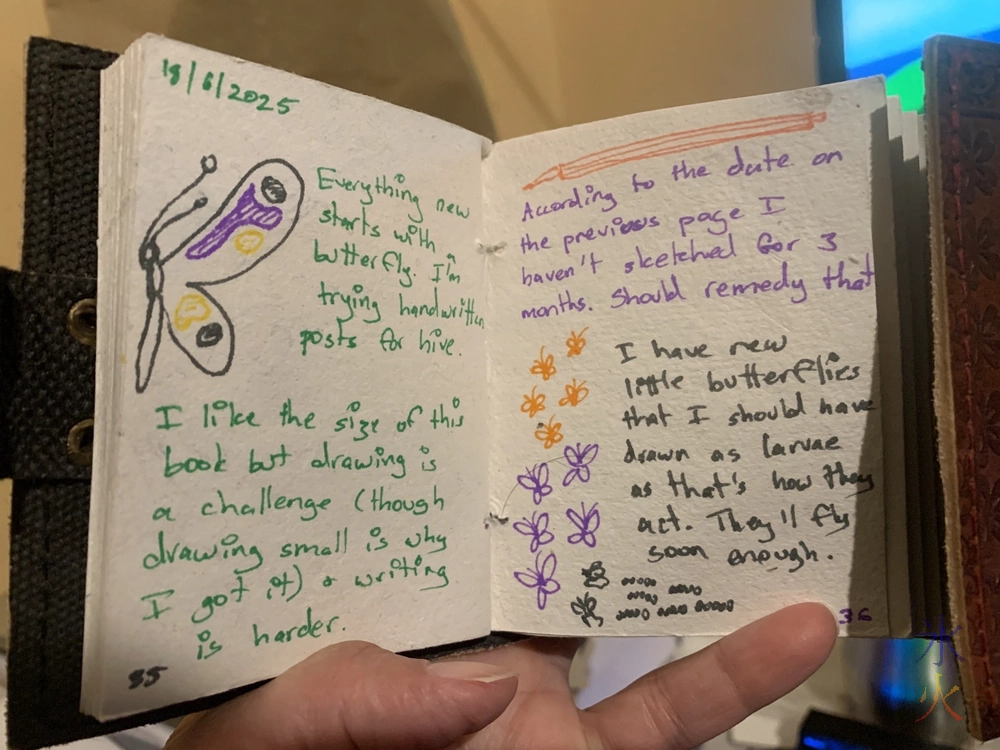 18/6/2025
Everything new
starts with
butterfly. I'm
trying handwritten
posts for hive.
I like the size of this
book but drawing is
a challenge (though
drawing small is why
I got it) & writing
is harder.
35
According to the date on
the previous page I
haven't sketched for 3
months. Should remedy that
I have new
little butterflies
that I should have
drawn as larvae
as that's how they
act. They'll fly
soon enough.
36
氷
火